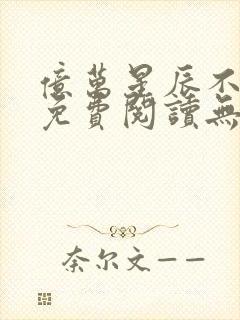 億萬星辰不
免費閱讀無
奈尔文——